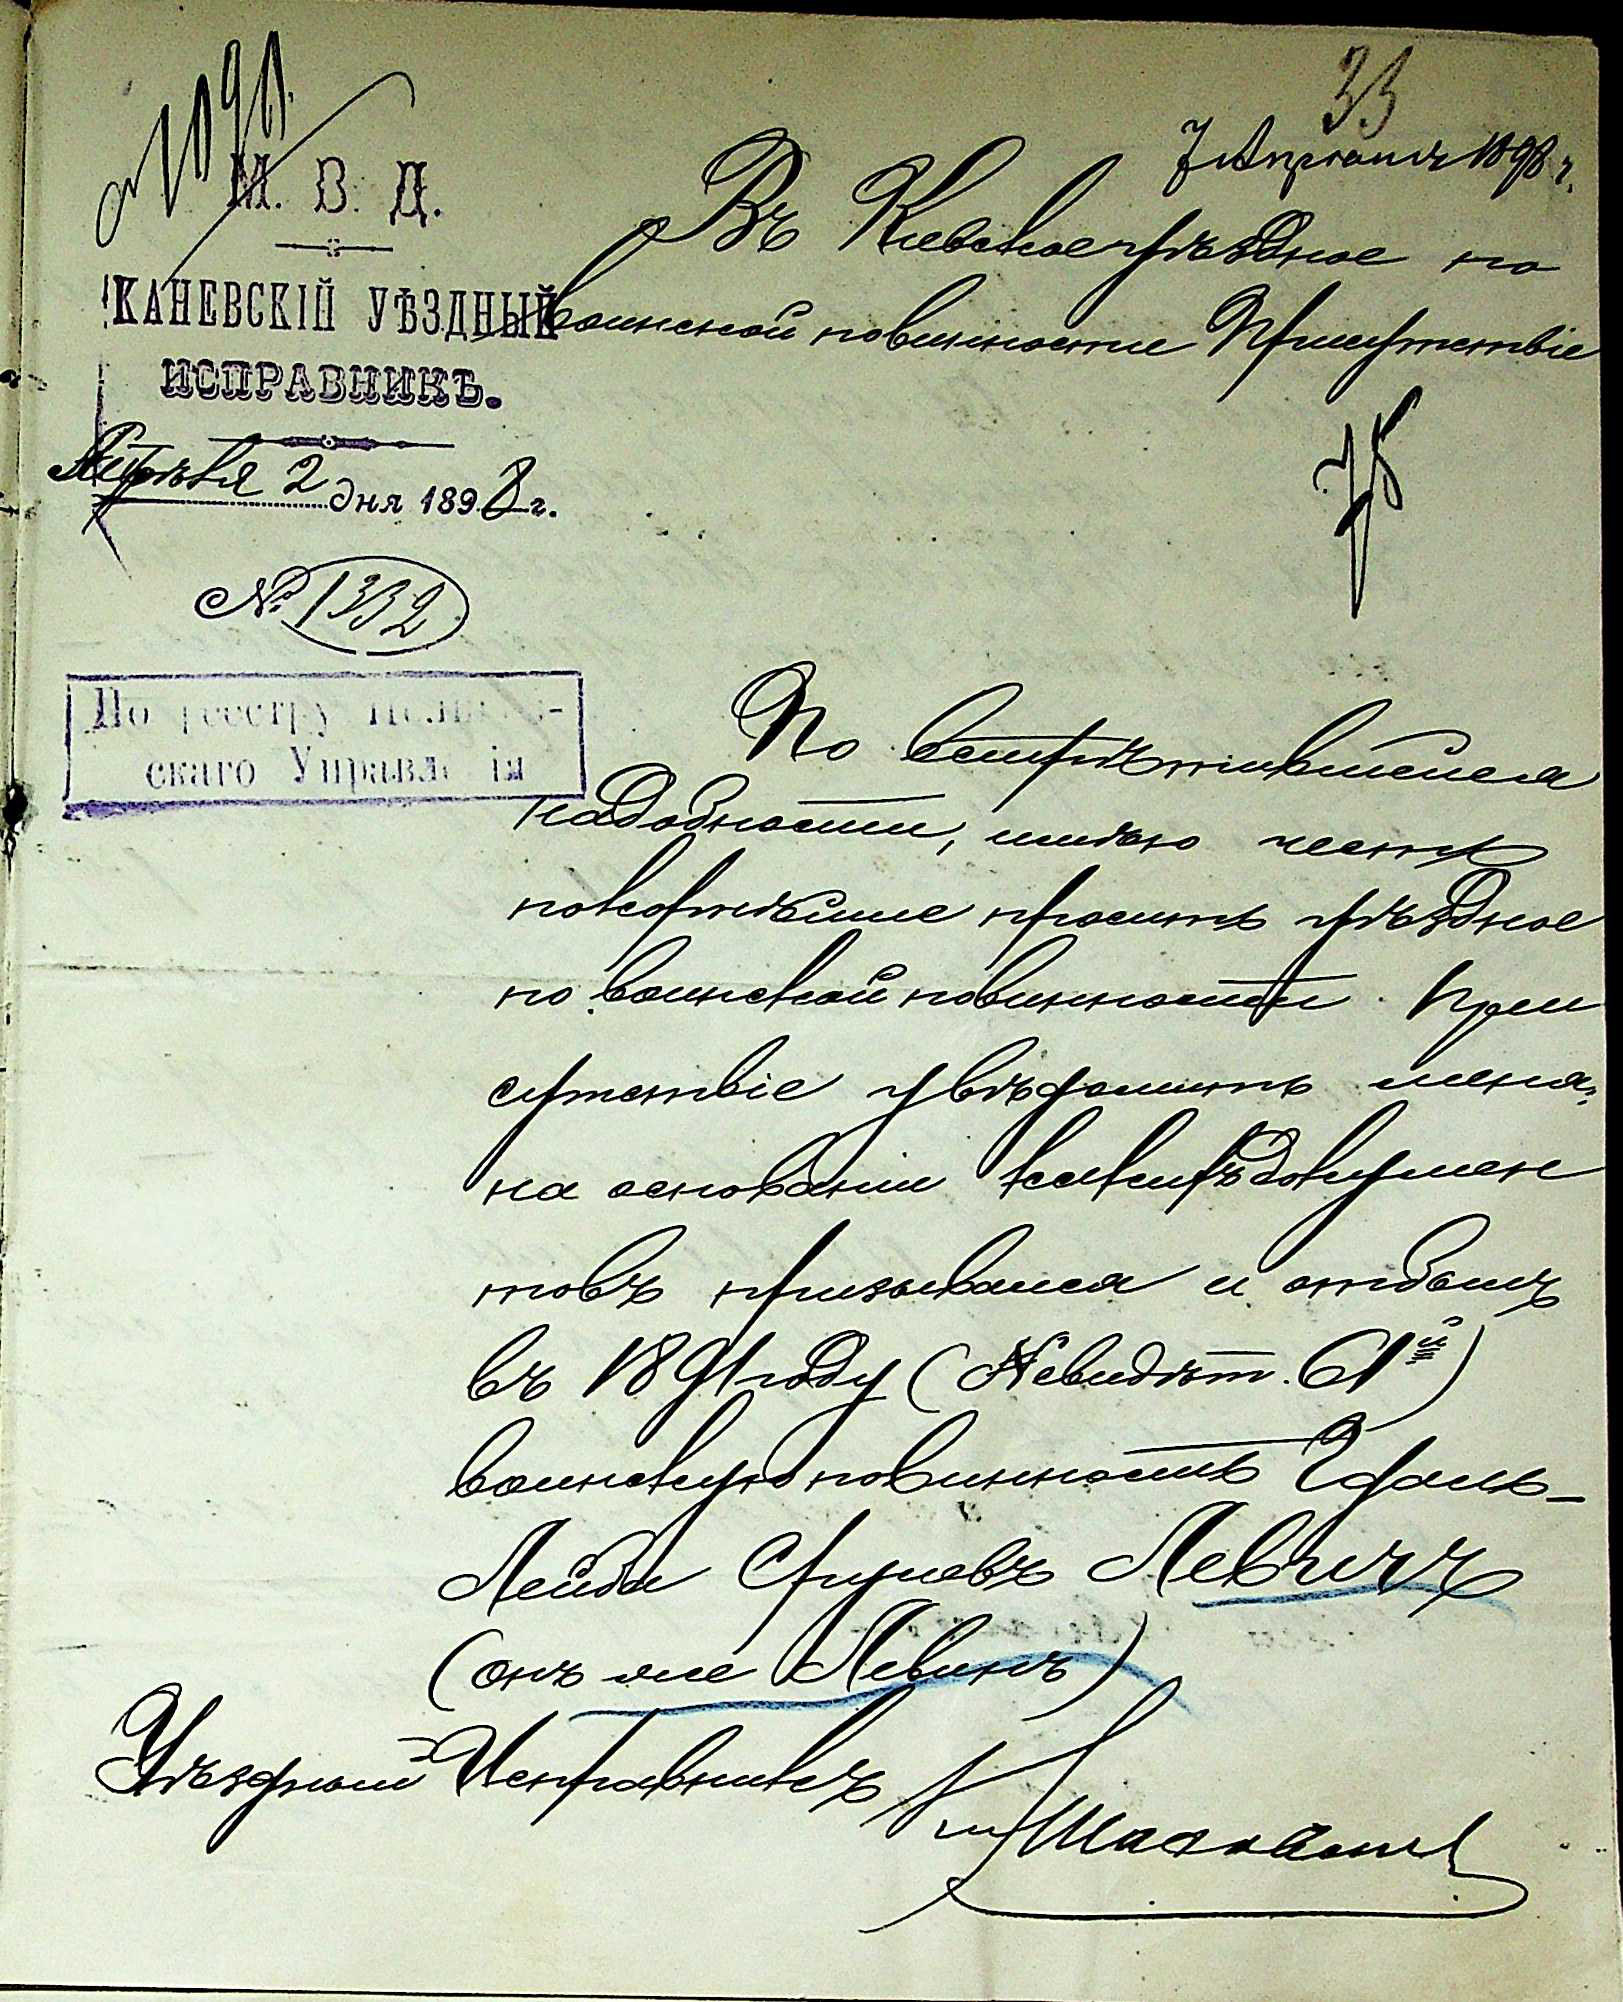 33
7 Апрѣля 1898 г.
М. В. Д.
КАНЕВСКІЙ УѢЗДНЫЙ
ИСПРАВНИКЪ.
Апрѣля 2 дня 1898 г.
№ 1332
По реестру Полицей-
скаго Управленія
Въ Киевское уѣздное по
воинской повинности Присутствіе
По встрѣтившейся
надобности, имѣю честь
покорнѣйше просить уѣздное
по воинской повинности При
сутствіе увѣдомить меня,
на основаніи какихъ докумен
товъ призывался и отбылъ
въ 1891 году
воинскую повинность Гдаль-
Лейба Сруловъ Левичъ
(онъ же Левинъ)
Уѣздный Исправникъ